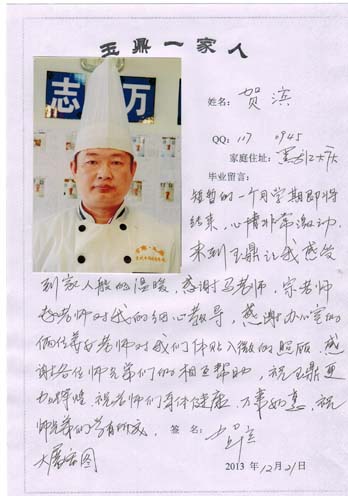 玉鼎一家人
志 万
姓名: 贺滨
QQ: 117 0945
家庭住址: 黑龙江大庆
毕业留言:
短暂的一个月学期即将
结束，心情非常激动，
来到玉鼎让我感受
到家人般的温暖，感谢马老师，宗老师
老师对我的细心教导，感谢办公室的
俩位美女老师对我们体贴入微的照顾，感
谢各位师兄弟们的相互帮助，祝玉鼎更
加辉煌，祝老师们身体健康，万事如意，祝
师兄弟们学有所成，
签名: 贺滨
大展宏图
2013 年12月21日